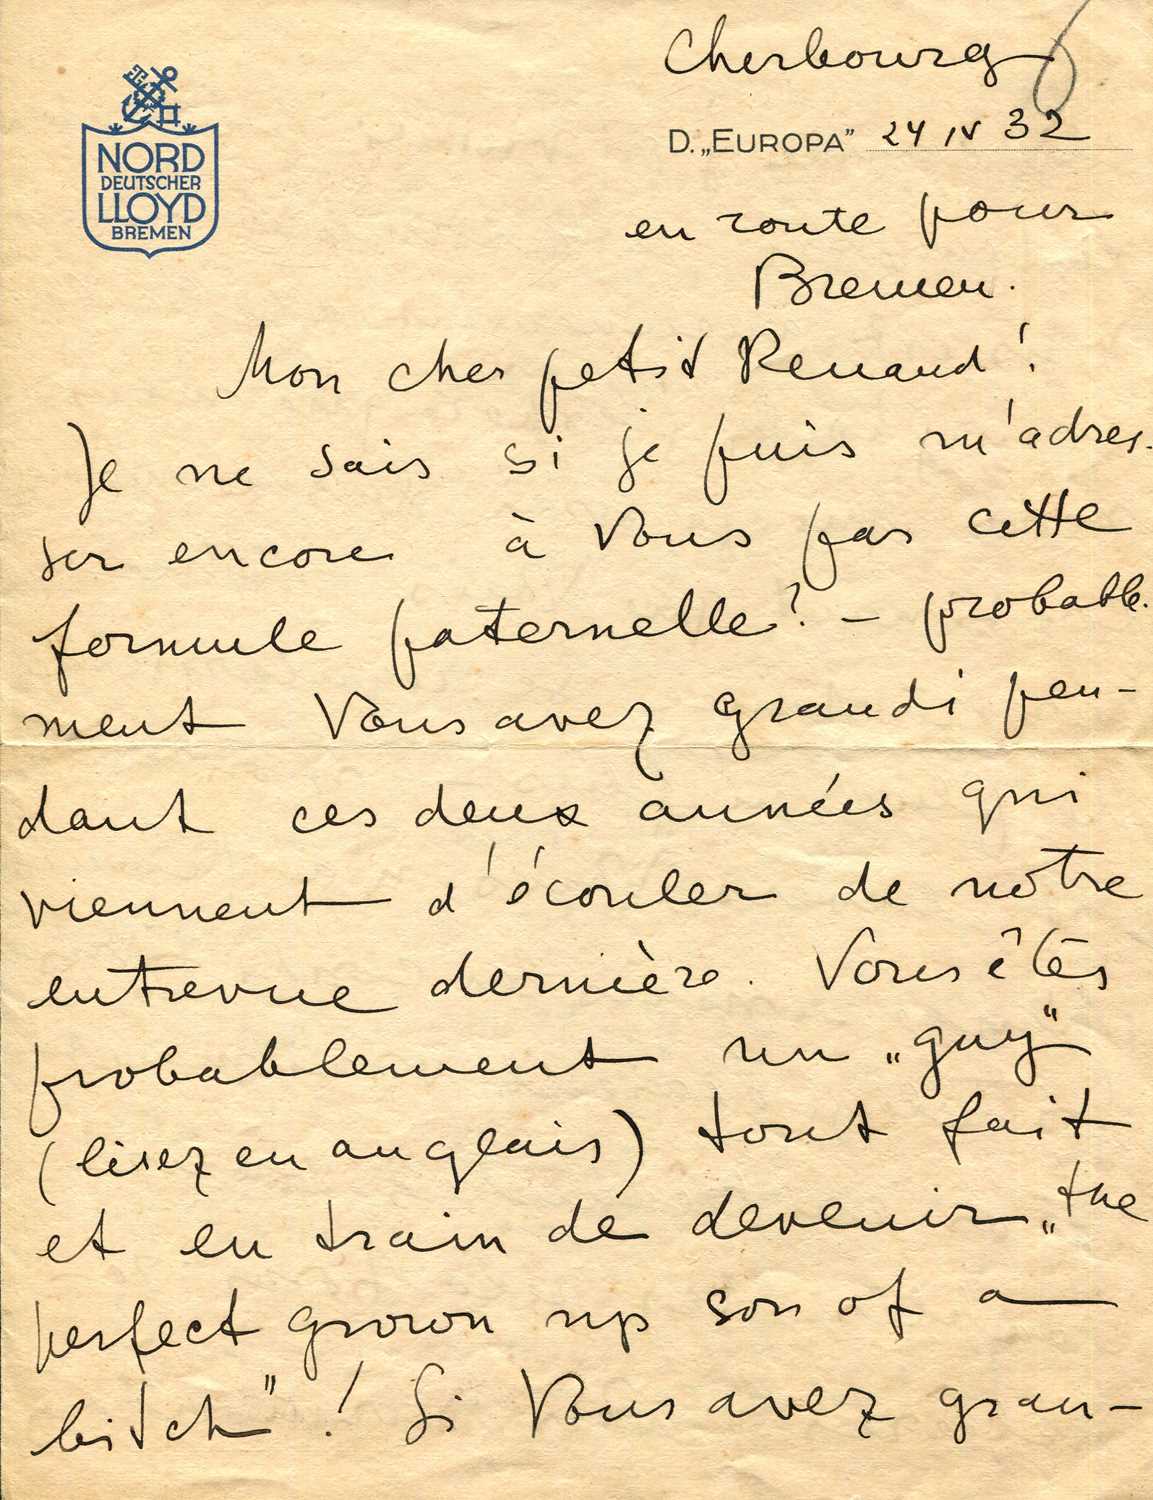 NORD
DEUTSCHER
LLOYD
BREMEN
Cherbourg
D. „EUROPA” 24 IV 32
en route pour
Bremen.
Mon cher petit Renaud!
Je ne sais si je puis m'adres-
ser encore à Vous par cette
formule paternelle? – probable-
ment Vous avez grandi pen-
dant ces deux années qui
viennent d'écouler de notre
entrevue dernière. Vous êtes
probablement un „guy”
(lisez en anglais) tout fait
et en train de devenir „the
perfect grown up son of a
bitch”! Si Vous avez gran-